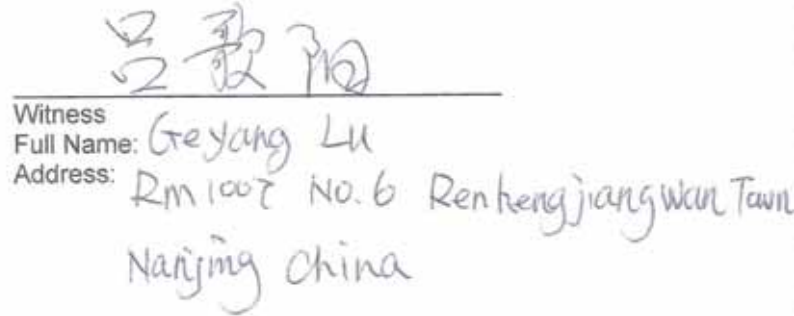 吕歌阳
Witness
Full Name: Geyang Lu
Address: Rm 1007 No. 6 Renhengjiangwan Town
Nanjing China